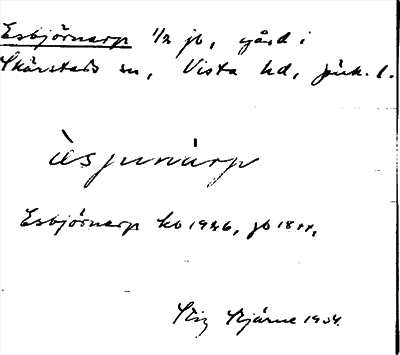 Esbjörnarp 1/2 jb, gård i
Skärstads sn, Vista hd, Jönk. l.
èsjunàrp
Esbjörnarp kb 1926, jb 18
Stig Bjärne 1934.